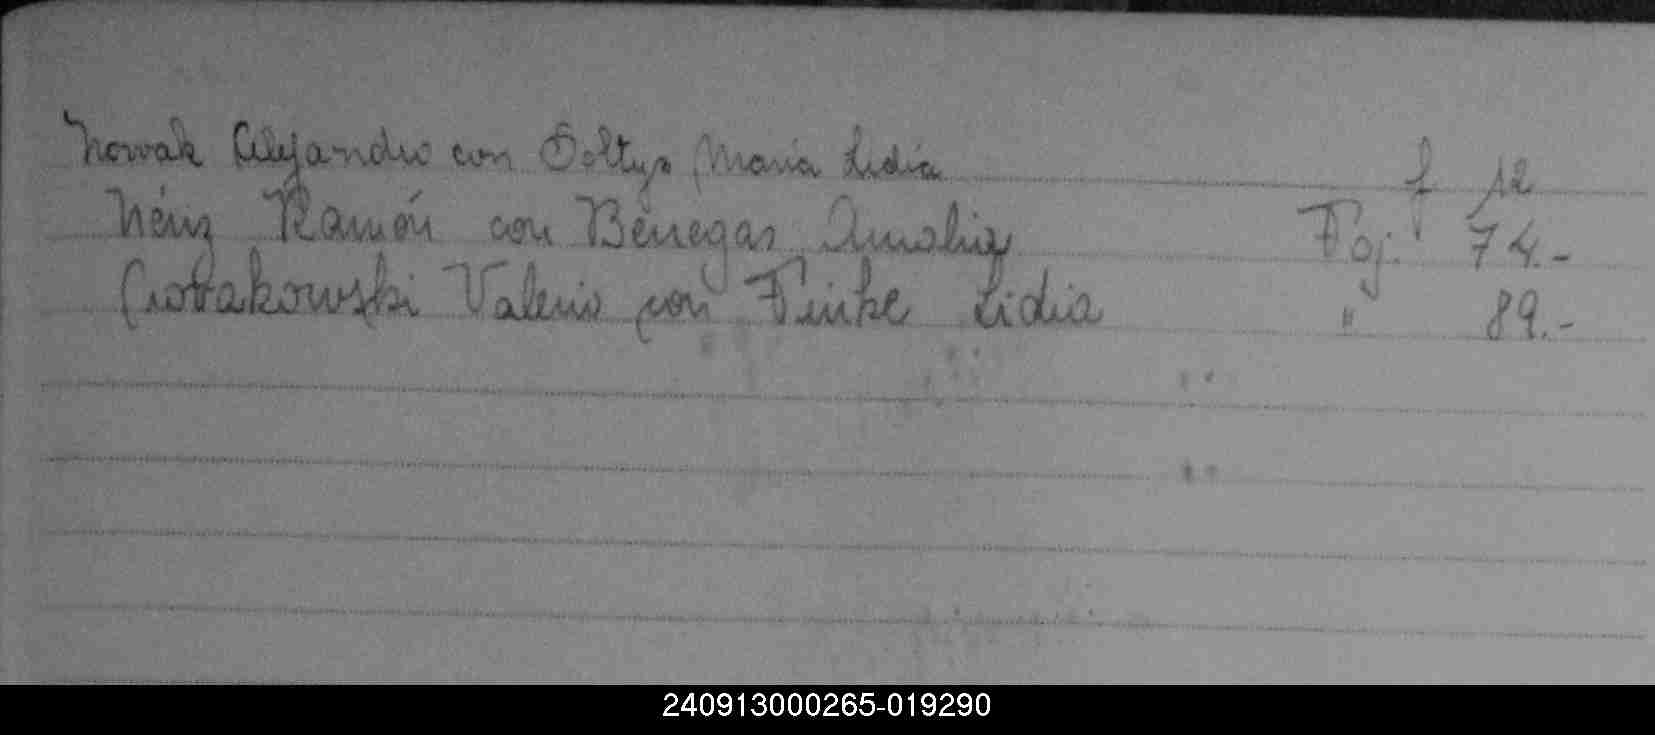 Nowak Alejandro con Soltys Maria Lidia f 12
Ramón con Benegas Amalia Foj. 74.-
Valerio con Finke Lidia " 89.-
240913000265-019290